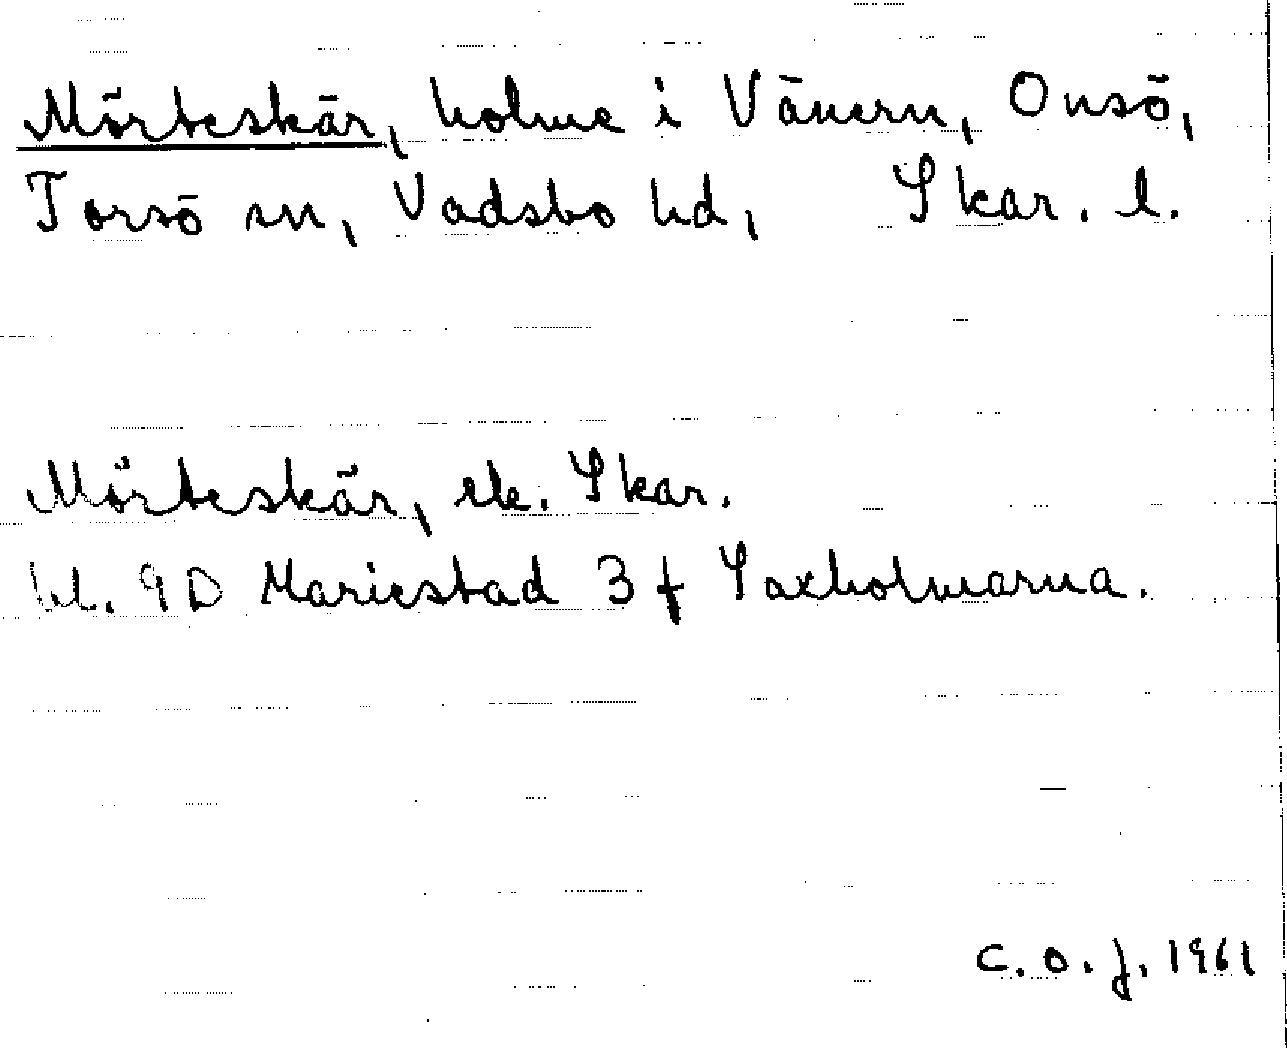 Mörteskär, holme i Vänern, Onsö,
Torsö sn, Vadsbo hd, Skar. l.
Mörteskär, ek. Skar.
bl. 9D Mariestad 3 f Laxholmarna.
C.O.J. 1961